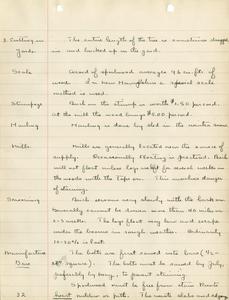 2. Cutting in The entire length of the tree is sometimes dragged
Yards and bucked up in the yard.
Scale A cord of spoolwood averages 96 cu. ft. of
wood. In New Hampshire a special scale
method is used.
Stumpage Birch on the stump is worth $1.50 per cord.
At the mill the wood brings $6.00 per cord.
Hauling Hauling is done by sled in the winter snow
Mills Mills are generally located near the source of
supply. Occasionally floating is practiced. Birch
will float unless logs
with the tops on. This involves danger
of staining.
Seasoning Birch seasons very slowly with the bark on.
Generally cannot be driven more than 40 miles or
2-3 weeks. The logs float very low and scrape
under the booms in rough weather. Ordinarily
10-20% is lost.
Manufacture The bolts are first sawed into bars (
square). The bolts must be sawed by July,
preferably by May, to prevent staining.
Spoolwood must be free from
32 heart or pith. The